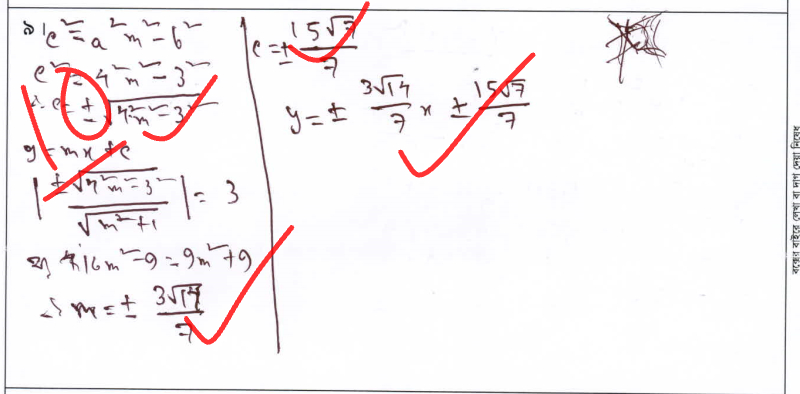 ৯। c² = a²m² - b²
c² = 4²m² - 3²
∴ c = ± √(4²m² - 3²)
y = mx + c
| ±√(4²m² - 3²) / √(m² + 1) | = 3
বা, 16m² - 9 = 9m² + 9
∴ m = ± 3√14 / 7
c = ± 15√7 / 7
y = ± 3√14 / 7 x ± 15√7 / 7
বক্সের বাইরে লেখা বা দাগ দেয়া নিষেধ